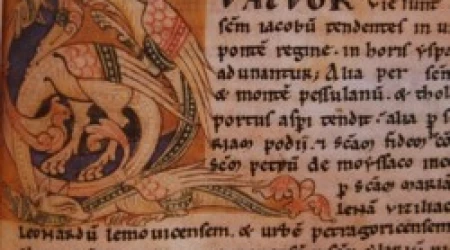 UATUOR vie sunt
sem iacobu tendentes in u
ponte regine. in horis yspa
adunantur; Alia per sem
& monte pessulanu. & thol
portus aspi tendit. alia p s
riam podii. & scam fidem co
scm petru de moyssaco ince
p scam maria
lena viziliac
leonardu lemovicensem. & urbe petragoricensem